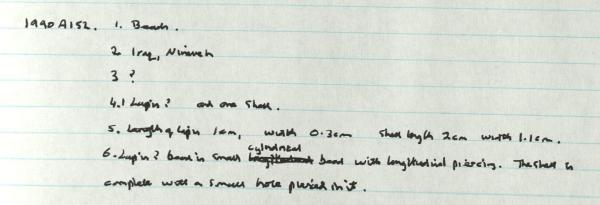 1990 A152. 1. Beads.
2. Iraq, Nineveh
3 ?
4. 1 Lapis? and one Shell.
5. Length of lapis 1cm, width 0.3cm Shell length 2cm width 1.1cm.
cylindrical
6. Lapis? bead is small bead with longitudinal piercing. The shell is
complete with a small hole pierced in it.